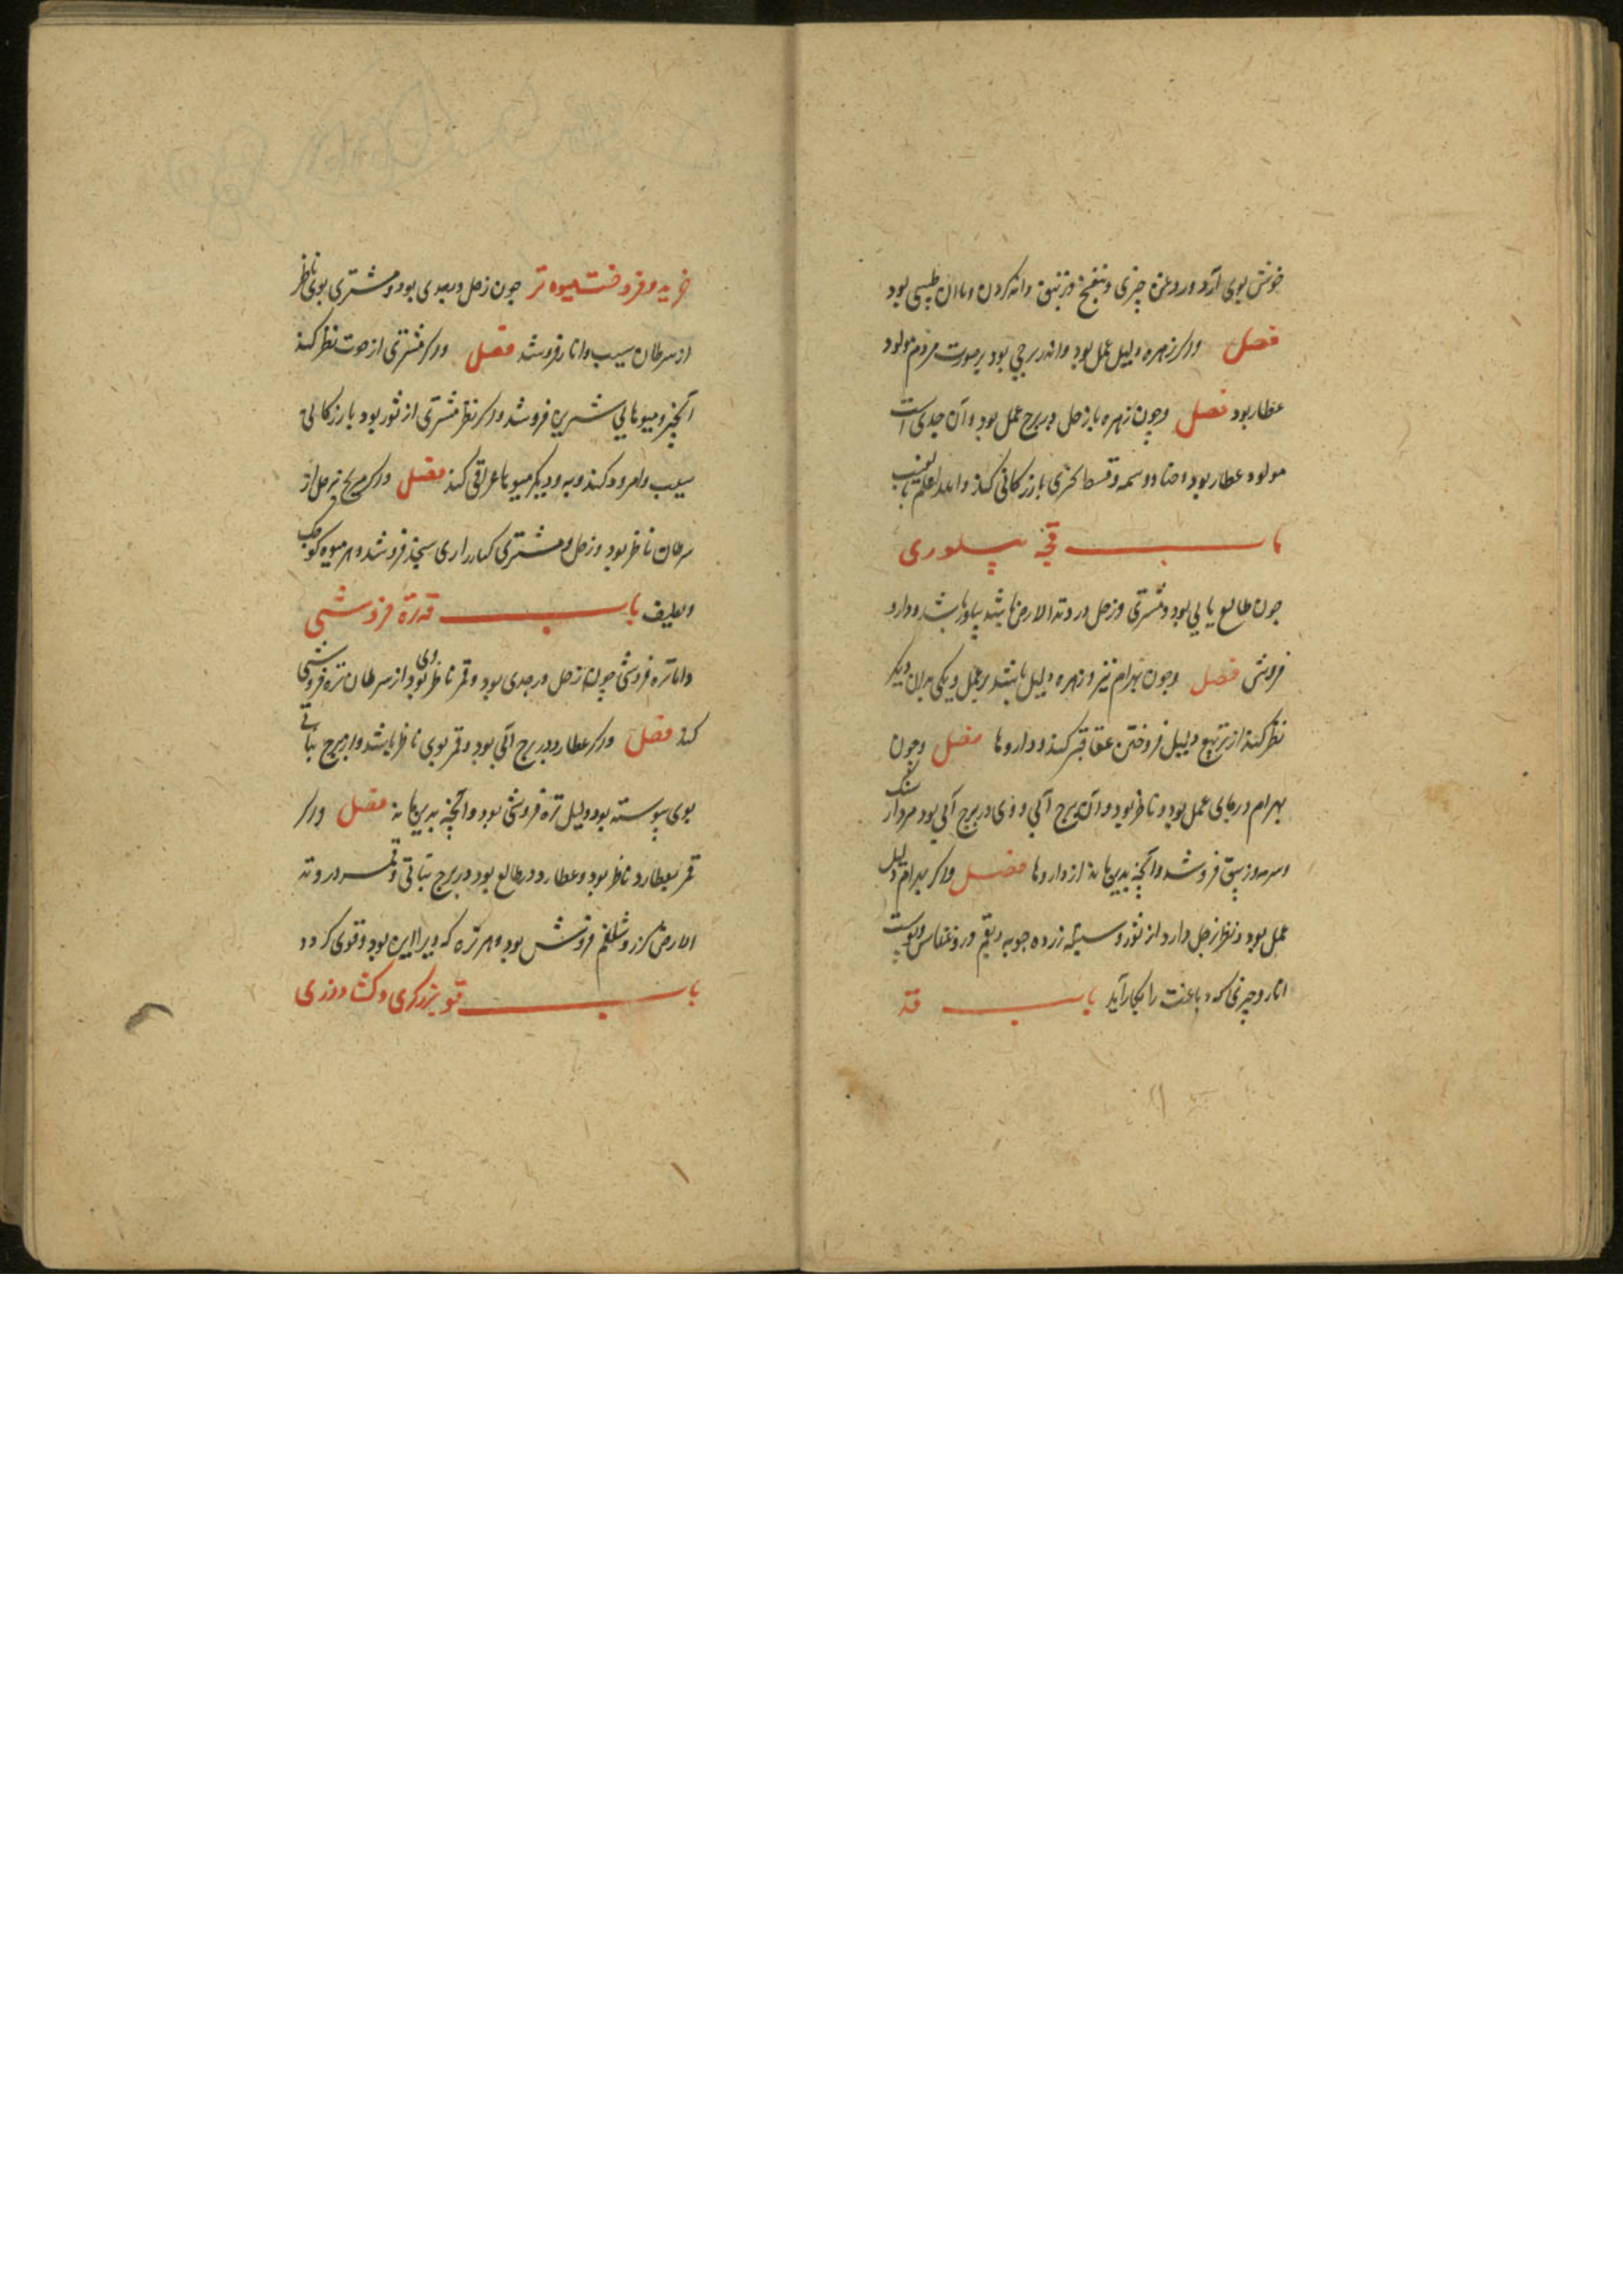 خوش بوی آرد و روغن خیری و بنفشج و زنبق و
فصل واکر زهره دلیل عمل بود واندر برجی بود بر صورت مردم مولود
عطار بود فصل وچون زهره با زحل در برج عمل بود وآن جدی است
مولود عطار بود وحنا ووسمه وقسط بحری بازرکانی کند والله اعلم
باب قح پیلوری
چون طالع بود ومشتری وزحل در وتد الارض باشد پیلور باشد ودارو
فروش فصل وچون بهرام نیز وزهره دلیل باشند بر عمل ویکی بدان دیکر
نظر کند از تربیع دلیل فروختن عقاقیر کند وداروها فصل وچون
بهرام در جای عمل بود وناظر بود وآن برج آبی ووی در برج آبی بود مردار سنک
وسرمه وزیبق فروشد وآنچه بدین ماند از داروها فصل واکر بهرام دلیل
عمل بود ونظر زحل دارد از ثور و زرده چوبه وبقم وپوست
انار وچیزی که دباغت را بکار آید باب قد
خرید وفروخت میوه تر چون زحل در جدی بود ومشتری بوی ناظر
از سرطان سیب وانار فروشد فصل واکر مشتری از حوت نظر کند
انجیر ومیوهایی شیرین فروشد واکر نظر مشتری از ثور بود بازرکانی
سیب وامرود کند وبه ودیکر میوها عراقی کند فصل واکر مریخ بزحل از
سرطان ناظر بود وزحل ومشتری فروشد وهر میوه کوچک
ولطیف باب قه تره فروشی
واما تره فروشی چون زحل در جدی بود وقمر ناظر بود بوی از سرطان تره فروشی
کند فصل واکر عطارد در برج آبی بود وقمر بوی ناظر باشد واز برج نباتی
بوی پیوسته بود دلیل تره فروشی بود وآنچه بدین ماند فصل واکر
قمر بعطارد ناظر بود وعطارد در طالع بود در برج نباتی وقمر در وتد
الارض کزر وشلغم فروش بود وهر تره که ویرا بود وقوی کردد
باب قو برزکری وکشاورزی